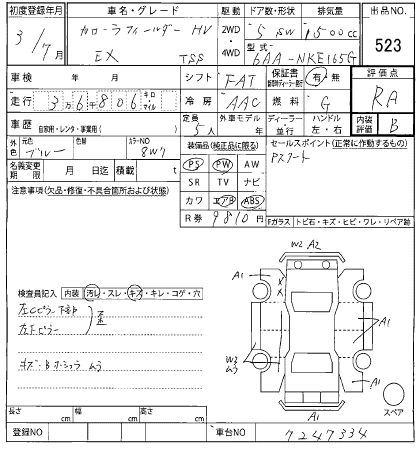 初度登録年月 車名・グレード 駆動 ドア数・形状 排気量 出品NO.
3/7月 カローラフィールダー HV 2WD 5 SW 1500cc 523
EX TSS 4WD 型式 6AA-NKE165G
車検 年 月 シフト FAT 保証書 有・無 評価点
走行 3万6千806 キロ マイル 冷房 AAC 燃料 G RA
車歴 自家用・レンタ・事業用( ) 定員 5人 外車モデル 年 ディーラー・並行 ハンドル 左・右 内装評価 B
外色 元色 ブルー 色替 カラーNO 8W7 装備品(純正品に限る) セールスポイント(正常に作動するもの)
名義変更期限 月 日迄 積載 t PS PW AW
SR TV ナビ
注意事項(欠品・修復・不具合箇所および状態) カワ エアB ABS
R券 9810円 Fガラス トビ石・キズ・ヒビ・ワレ・リペア跡
W2 A2
A1
検査員記入 内装 汚レ・スレ・キズ・キレ・コゲ・穴
左Cピラー下部
左Fピラー
A1
W2
ムラ
A1
A1
スペア
長さ cm 幅 cm 高さ cm
登録NO 車台NO 7247334